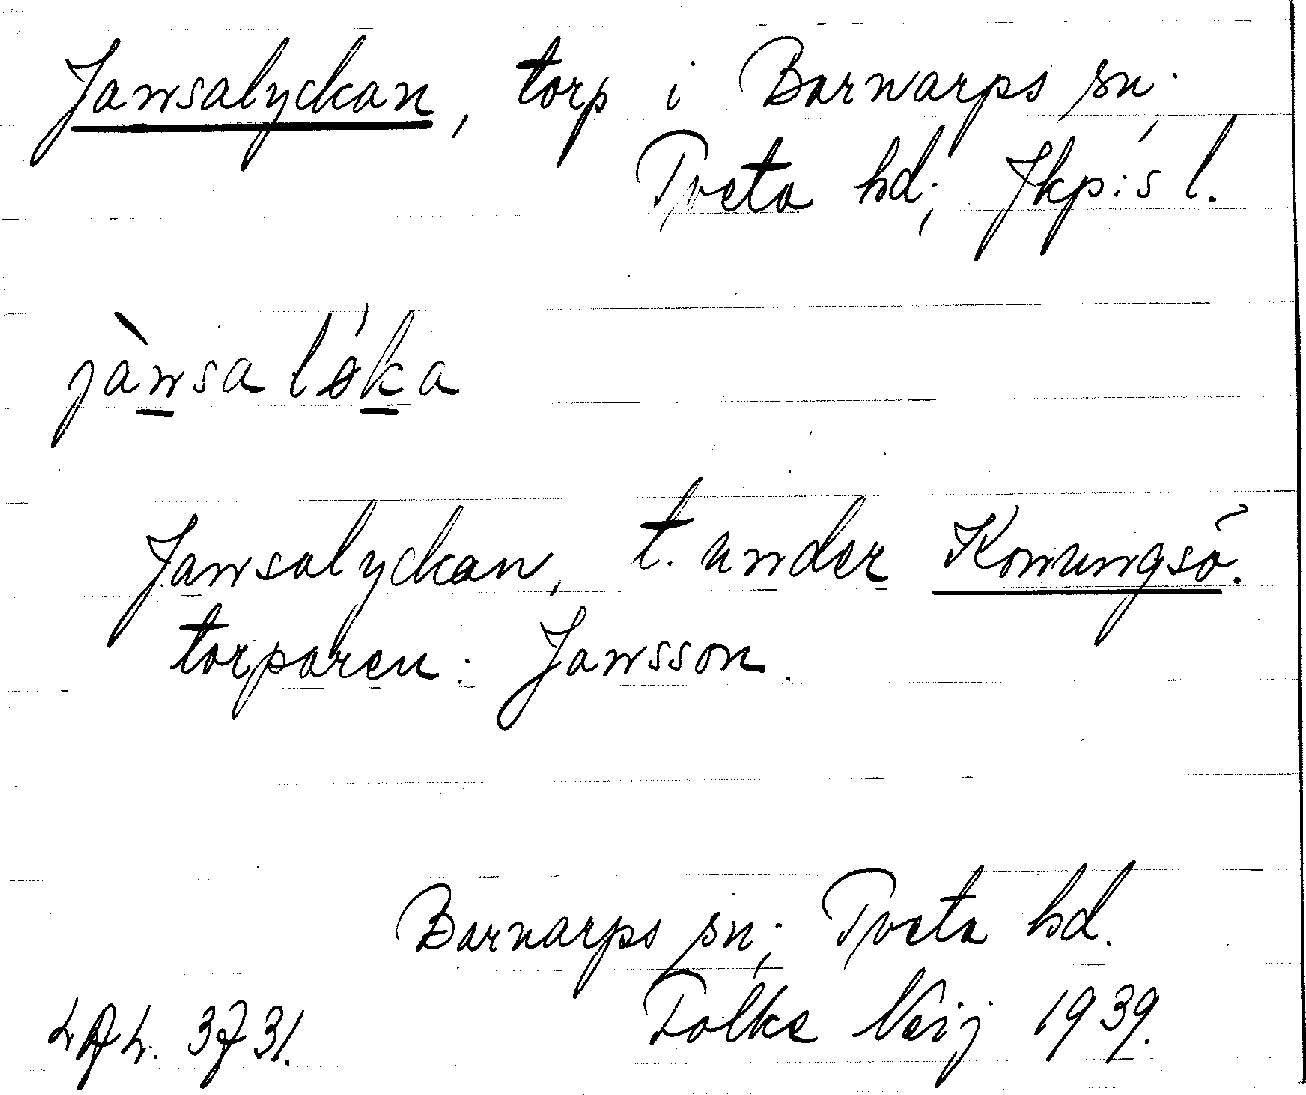 Jansalyckan, torp i Barnarps sn;
Tveta hd; Jkp:s l.
jànsalǿka
Jansalyckan, t. under Konungsö.
torparen: Jansson.
Barnarps sn; Tveta hd.
Folke Neij 1939.
3731.